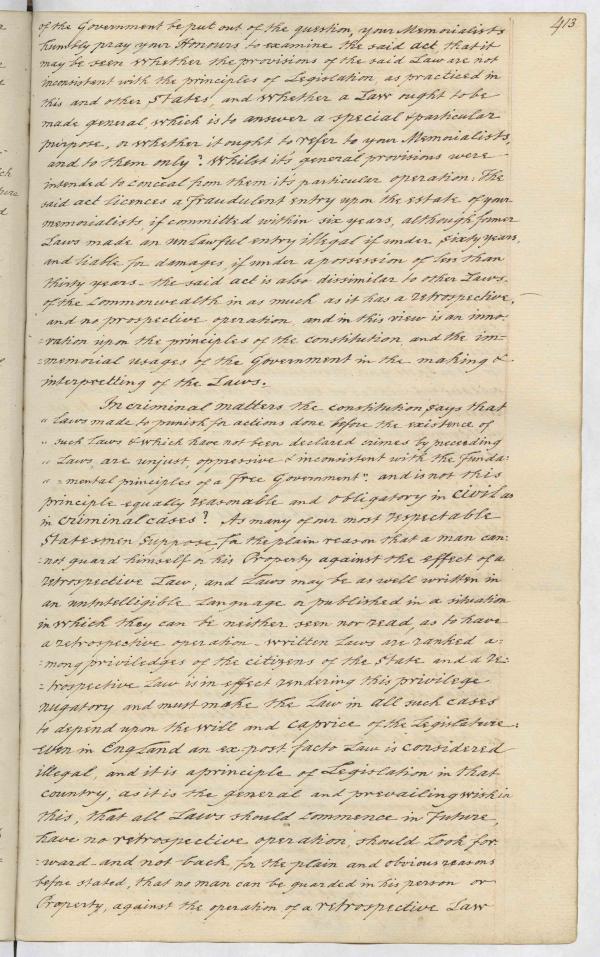 413
of the Government be put out of the question, your Memorialists
humbly pray your Honours to examine the said act, that it
may be seen whether the provisions of the said Law are not
inconsistent with the principles of Legislation as practiced in
this and other States, and whether a Law ought to be
made general, which is to answer a special & particular
purpose, or whether it ought to refer to your Memorialists,
and to them only? Whilst it's general provisions were
intended to conceal from them it's particular operation: The
said act licences a fraudulent entry upon the estate of your
memorialists, if committed within six years, although former
Laws made an unlawful entry illegal if under sixty years,
and liable for damages, if under a possession of less than
thirty years - the said act is also dissimilar to other Laws
of the Commonwealth in as much as it has a retrospective,
and no prospective operation, and in this view is an inno=
=ration upon the principles of the constitution, and the im=
=memorial usages of the Government in the making &
interpretting of the Laws.
In criminal matters the constitution says that
"Laws made to punish for actions done before the existence of
"such Laws & which have not been declared crimes by preceeding
"Laws, are unjust, oppressive & inconsistent with the Funda=
"=mental principles of a Free Government". and is not this
principle equally reasonable and obligatory in civil as
in criminal cases? As many of our most respectable
Statesmen Suppose, for the plain reason that a man can=
=not guard himself or his Property against the effect of a
retrospective Law; and Laws may be as well written in
an unintelligible Language or published in a situation
in which they can be neither seen nor read, as to have
a retrospective operation - written Laws are ranked a=
=mong priviledges of the citizens of the State and a re=
=trospective Law is in effect rendering this privilege
nugatory and must make the Law in all such cases
to depend upon the will and caprice of the Legislature.
Even in England an ex post facto Law is considered
illegal, and it is a principle of Legislation in that
country, as it is the general and prevailing wish in
this, that all Laws should commence in Future,
have no retrospective operation, should look for
=ward and not back, for the plain and obvious reasons
before stated, that no man can be guarded in his person or
Property, against the operation of a retrospective Law